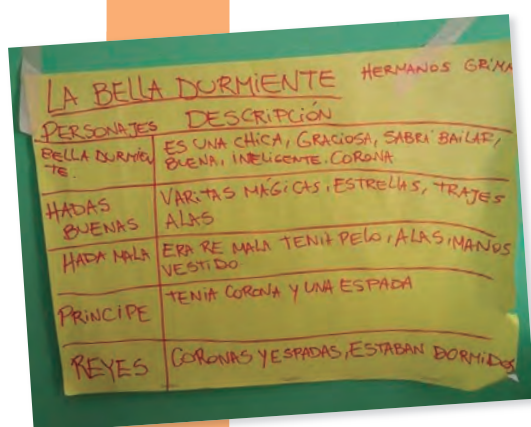 LA BELLA DURMIENTE HERMANOS GRIMM
PERSONAJES DESCRIPCIÓN
BELLA DURMIEN
TE.
ES UNA CHICA, GRACIOSA, SABRÁ BAILAR,
BUENA, INELIGENTE. CORONA
HADAS
BUENAS
VARITAS MÁGICAS, ESTRELLAS, TRAJES
ALAS
HADA MALA
ERA RE MALA TENIA PELO, ALAS, MANOS
VESTIDO
PRINCIPE
TENIA CORONA Y UNA ESPADA
REYES
CORONAS Y ESPADAS, ESTABAN DORMIDOS